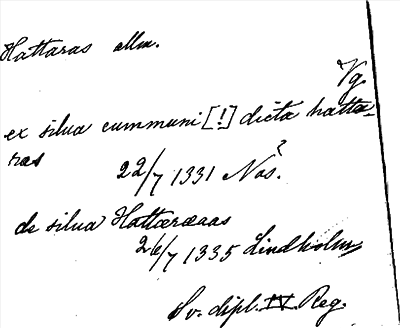 Hattaras allm.
Vg.
ex silua cummuni [!] dicta hatta-
ras
22/7 1331 Nos. ?
de silua Hattæræaas
26/7 1335 Lindholm
Sv. dipl. IV. Reg.